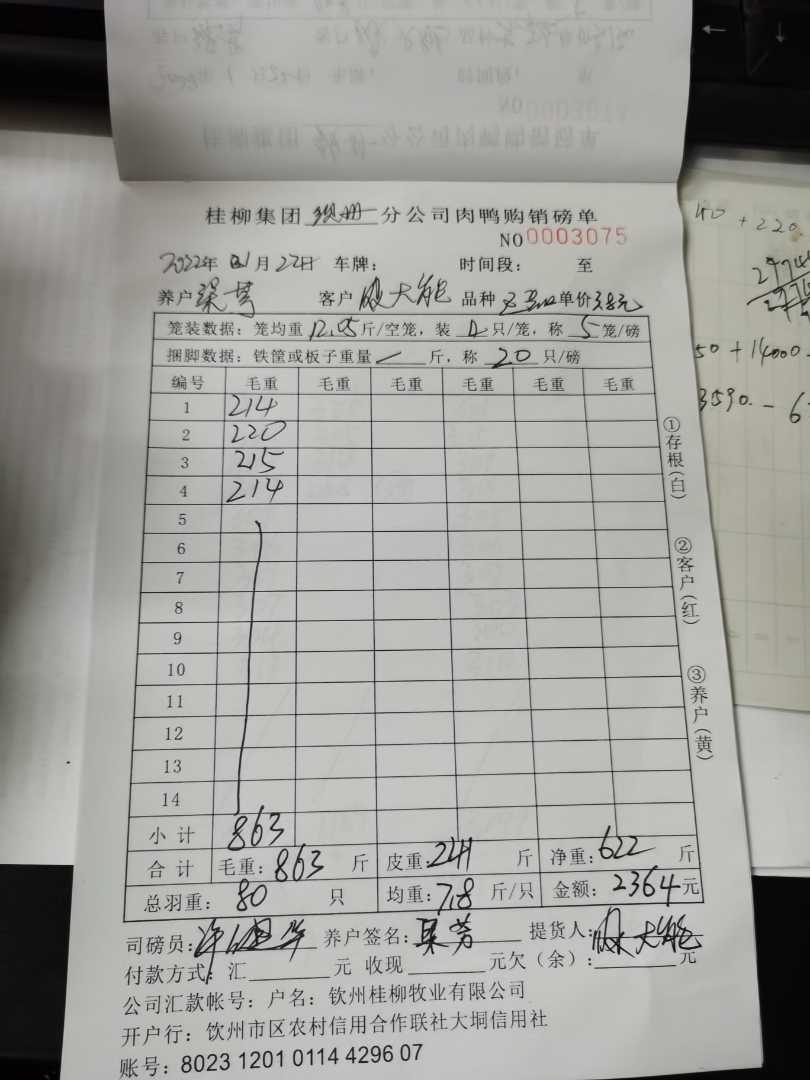 桂柳集团 分公司肉鸭购销磅单
NO 0003075
2022年 01月 22日 车牌： 时间段： 至
养户 梁芳 客户 大能 品种 单价 3.8元
笼装数据：笼均重 12.05 斤/空笼，装 4 只/笼，称 5 笼/磅
捆脚数据：铁筐或板子重量 斤，称 20 只/磅
编号 毛重 毛重 毛重 毛重 毛重 毛重
1 214
2 220
3 215
4 214
5
6
7
8
9
10
11
12
13
14
小计 863
合计 毛重：863 斤 皮重：241 斤 净重：622 斤
总羽重：80 只 均重：7.8 斤/只 金额：2364元
司磅员： 养户签名：梁芳 提货人： 大能
付款方式：汇 元 收现 元欠（余）： 元
公司汇款帐号：户名：钦州桂柳牧业有限公司
开户行：钦州市区农村信用合作联社大垌信用社
账号：8023 1201 0114 4296 07
①存根(白)
②客户(红)
③养户(黄)
50 + 14000
3590 - 6